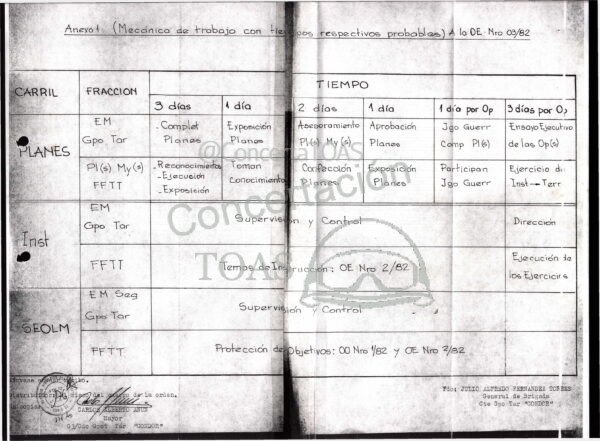 Anexo 1 (Mecánica de trabajo con tiempos respectivos probables) A la OE Nro 03/82
CARRIL FRACCION TIEMPO
3 días 1 día 2 días 1 día 1 día por Op 3 días por Op
PLANES
EM
Gpo Tar
- Complet
Planes
Exposición
Planes
Asesoramiento
Pl(s) My(s)
Aprobación
Planes
Jgo Guerr
Comp Pl(s)
Ensayo Ejecutivo
de las Op(s)
Pl(s) My(s)
FFTT
- Reconocimiento
- Ejecución
- Exposición
Toman
Conocimiento
Confección
Planes
Exposición
Planes
Participan
Jgo Guerr
Ejercicio di
Inst - Terr
Inst
EM
Gpo Tar
Supervisión y Control
Dirección
FFTT
Temas de Instrucción: OE Nro 2/82
Ejecución de
los Ejercicis
SEOLM
EM Seg
Gpo Tar
Supervisión y Control
FFTT
Protección de Objetivos: OO Nro 1/82 y OE Nro 2/82
@ConcertaTOAS
Concertación
TOAS
de la orden.
CARLOS ALBERTO
Mayor
"CONDOR"
Fdo: JULIO ALFREDO FERNANDEZ TORRES
General de Brigada
Cte Gpo Tar "CONDOR"